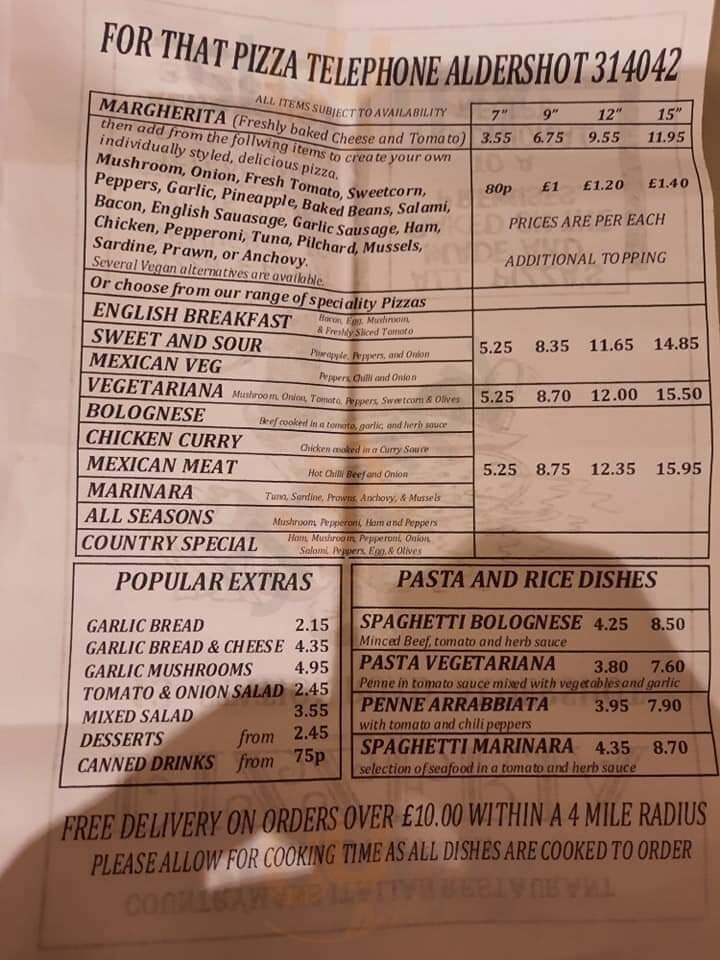 FOR THAT PIZZA TELEPHONE ALDERSHOT 314042
ALL ITEMS SUBJECT TO AVAILABILITY
7" 9" 12" 15"
MARGHERITA (Freshly baked Cheese and Tomato) 3.55 6.75 9.55 11.95
then add from the follwing items to create your own
individually styled, delicious pizza.
Mushroom, Onion, Fresh Tomato, Sweetcorn,
Peppers, Garlic, Pineapple, Baked Beans, Salami,
Bacon, English Sauasage, Garlic Sausage, Ham,
Chicken, Pepperoni, Tuna, Pilchard, Mussels,
Sardine, Prawn, or Anchovy.
Several Vegan alternatives are available.
80p £1 £1.20 £1.40
PRICES ARE PER EACH
ADDITIONAL TOPPING
Or choose from our range of speciality Pizzas
ENGLISH BREAKFAST Bacon, Egg, Mushroom,
& Freshly Sliced Tomato
SWEET AND SOUR Pineapple, Peppers, and Onion
5.25 8.35 11.65 14.85
MEXICAN VEG Peppers, Chilli and Onion
VEGETARIANA Mushroom, Onion, Tomato, Peppers, Sweetcorn & Olives 5.25 8.70 12.00 15.50
BOLOGNESE Beef cooked in a tomato, garlic, and herb sauce
CHICKEN CURRY Chicken cooked in a Curry Sauce
MEXICAN MEAT Hot Chilli Beef and Onion 5.25 8.75 12.35 15.95
MARINARA Tuna, Sardine, Prawns, Anchovy, & Mussels
ALL SEASONS Mushroom, Pepperoni, Ham and Peppers
COUNTRY SPECIAL Ham, Mushroom, Pepperoni, Onion,
Salami, Peppers, Egg, & Olives
POPULAR EXTRAS
GARLIC BREAD 2.15
GARLIC BREAD & CHEESE 4.35
GARLIC MUSHROOMS 4.95
TOMATO & ONION SALAD 2.45
MIXED SALAD 3.55
DESSERTS from 2.45
CANNED DRINKS from 75p
PASTA AND RICE DISHES
SPAGHETTI BOLOGNESE 4.25 8.50
Minced Beef, tomato and herb sauce
PASTA VEGETARIANA 3.80 7.60
Penne in tomato sauce mixed with vegetables and garlic
PENNE ARRABBIATA 3.95 7.90
with tomato and chili peppers
SPAGHETTI MARINARA 4.35 8.70
selection of seafood in a tomato and herb sauce
FREE DELIVERY ON ORDERS OVER £10.00 WITHIN A 4 MILE RADIUS
PLEASE ALLOW FOR COOKING TIME AS ALL DISHES ARE COOKED TO ORDER